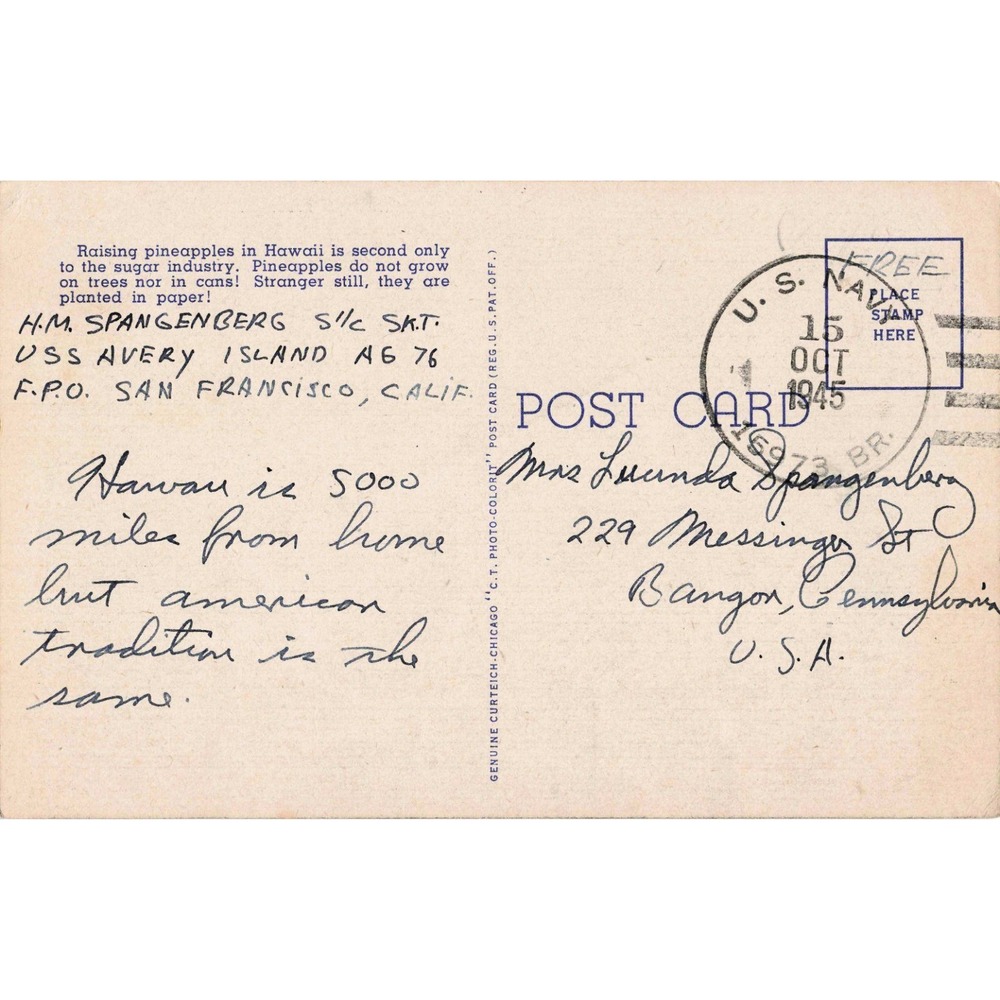 Raising pineapples in Hawaii is second only
to the sugar industry. Pineapples do not grow
on trees nor in cans! Stranger still, they are
planted in paper!
H.M. SPANGENBERG S1/c SKT.
USS AVERY ISLAND AG 76
F.P.O. SAN FRANCISCO, CALIF.
Hawaii is 5000
miles from home
but american
tradition is the
same.
GENUINE CURTEICH-CHICAGO "C.T. PHOTO-COLORIT" POST CARD (REG. U.S. PAT. OFF.)
FREE
PLACE
STAMP
HERE
U. S. NAVY
15
OCT
1945
16973 BR.
POST CARD
Mrs Lucinda Spangenberg
229 Messinger St
Bangor, Pennsylvania
U. S. A.